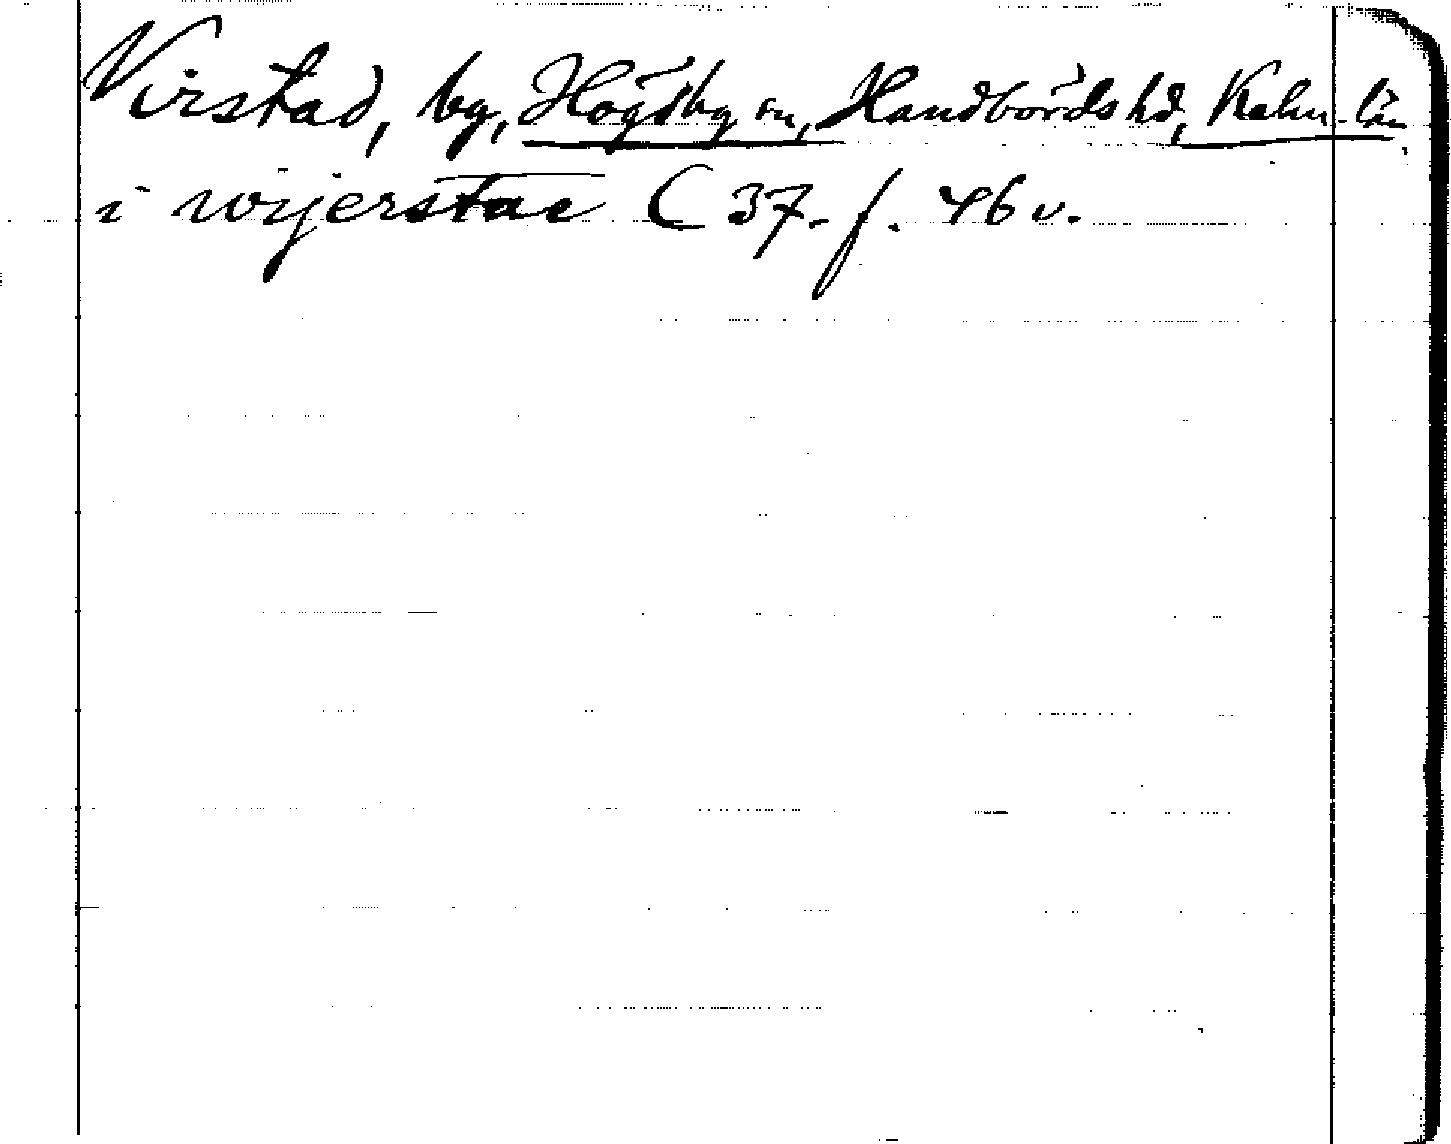 Virstad, by, Högsby sn, Handbörds hd, Kalm. län
i wijerstac C 37. f. 46 v.